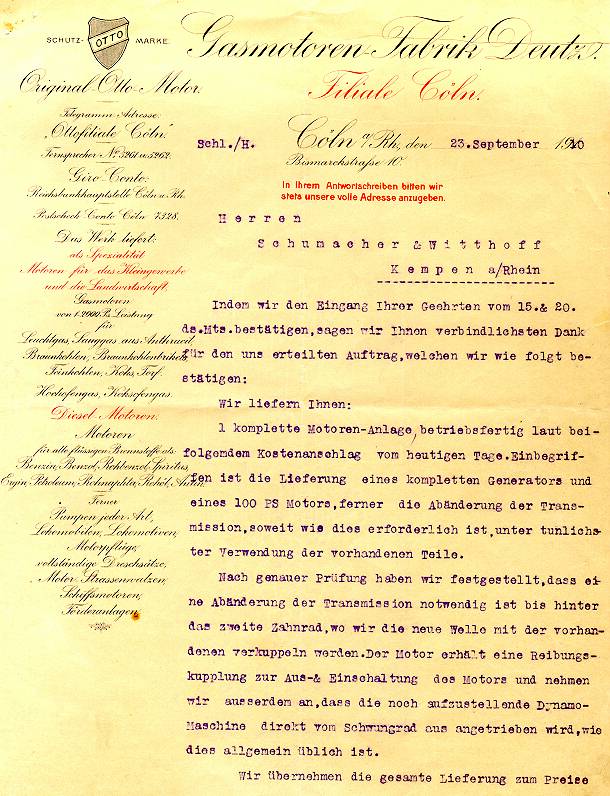 SCHUTZ- OTTO MARKE.
Gasmotoren-Fabrik Deutz.
Original-Otto-Motor.
Filiale Cöln.
Telegramm-Adresse:
"Ottofiliale Cöln."
Fernsprecher No 5261 u. 5262.
Giro-Conto:
Reichsbankhauptstelle Cöln a. Rh.
Postscheck-Conto Cöln 7328.
Das Werk liefert:
als Spezialität
Motoren für das Kleingewerbe
und die Landwirtschaft.
Gasmotoren
von 1-2000 Ps. Leistung
für
Leuchtgas, Sauggas aus Anthracit,
Braunkohlen, Braunkohlenbriketts,
Feinkohlen, Koks, Torf.
Hochofengas, Koksofengas.
Diesel-Motoren.
Motoren
für alle flüssigen Brennstoffe als:
Benzin, Benzol, Rohbenzol, Spiritus,
Ergin, Petroleum, Rohnaphta, Rohöl,
Ferner
Pumpen jeder Art,
Lokomobilen, Lokomotiven,
Motorpflüge,
vollständige Dreschsätze,
Motor-Strassenwalzen,
Schiffsmotoren,
Förderanlagen.
Schl./H.
Cöln a/Rh., den 23.September 1910
Bismarckstraße 10.
In Ihrem Antwortschreiben bitten wir
stets unsere volle Adresse anzugeben.
Herren
Schumacher & Witthoff
Kempen a/Rhein
Indem wir den Eingang Ihrer Geehrten vom 15.& 20.
ds.Mts.bestätigen,sagen wir Ihnen verbindlichsten Dank
für den uns erteilten Auftrag,welchen wir wie folgt be-
stätigen:
Wir liefern Ihnen:
1 komplette Motoren-Anlage,betriebsfertig laut bei-
folgemdem Kostenanschlag vom heutigen Tage.Einbegrif-
fen ist die Lieferung eines kompletten Generators und
eines 100 PS Motors,ferner die Abänderung der Trans-
mission,soweit wie dies erforderlich ist,unter tunlichs-
ter Verwendung der vorhandenen Teile.
Nach genauer Prüfung haben wir festgestellt,dass ei-
ne Abänderung der Transmission notwendig ist bis hinter
das zweite Zahnrad,wo wir die neue Welle mit der vorhan-
denen verkuppeln werden.Der Motor erhält eine Reibungs-
kupplung zur Aus-& Einschaltung des Motors und nehmen
wir ausserdem an,dass die noch aufzustellende Dynamo-
Maschine direkt vom Schwungrad aus angetrieben wird,wie
dies allgemein üblich ist.
Wir übernehmen die gesamte Lieferung zum Preise